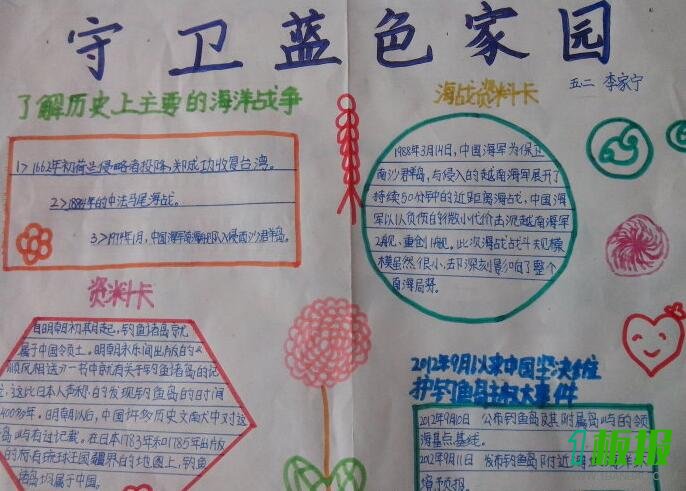 守卫蓝色家园
五二 李家宁
了解历史上主要的海洋战争
1> 1662年初荷兰侵略者投降,郑成功收复台湾。
2> 1884年的中法马尾海战。
3> 1974年1月,中国海军
入侵西沙群岛。
海战资料卡
1988年3月14日,中国海军为保卫
南沙群岛,与侵入的越南海军展开了
持续50分钟的近距离海战,中国海
军以1人负伤的微小代价击沉越南海军
2舰、重创1舰,此次海战战斗规模
模虽然很小,却深刻影响了整个
南海局势。
资料卡
自明朝初期起,钓鱼诸岛就
属于中国领土。明朝永乐间出版的《
顺风相送》一书中就有关于钓鱼诸岛的记
这比日本人声称的发现钓鱼岛的时间
400多年。明朝以后,中国许多历史文南大中对这
岛屿有过记载。在日本1783年和1785年出版
的标有琉球王国疆界的地图上,钓鱼
诸岛均属于中国。
2012年9月以来中国坚决维
护钓鱼岛主权大事件
2012年9月10日 公布钓鱼岛及其附属岛屿的领
海基点基线。
2012年9月11日 发布钓鱼岛附近
预报。
板报